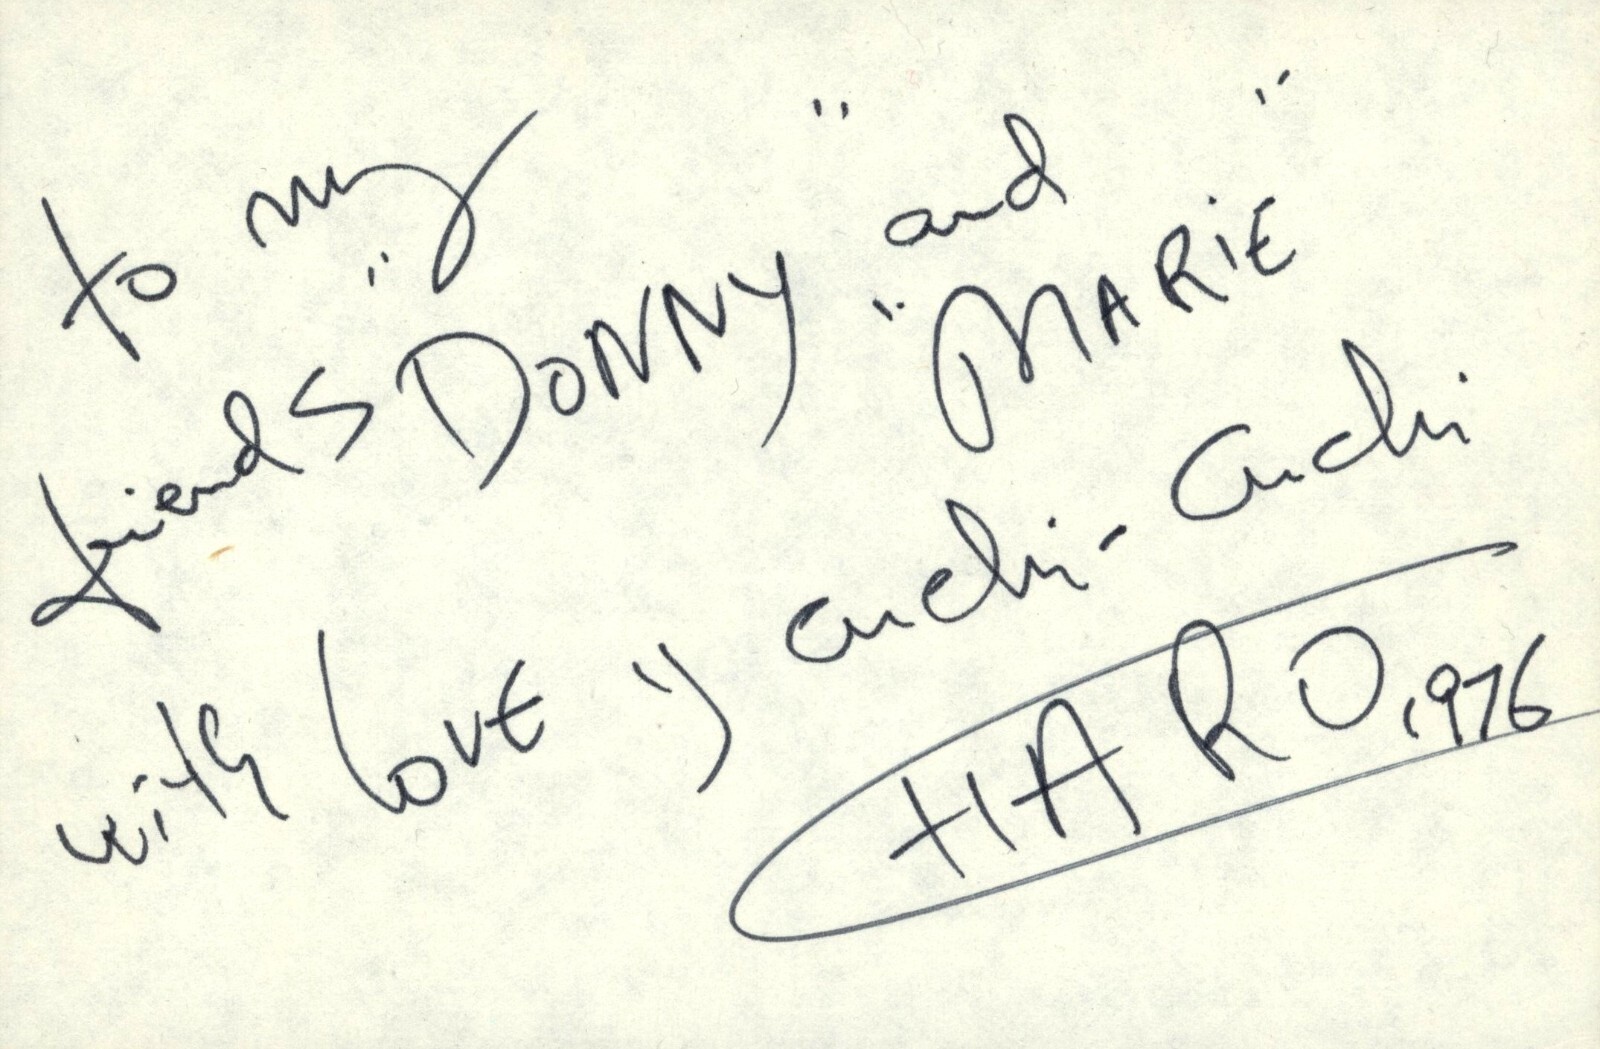 to my
friends "DONNY" and "MARIE"
with love y cuchi-cuchi
CHARO, 1976